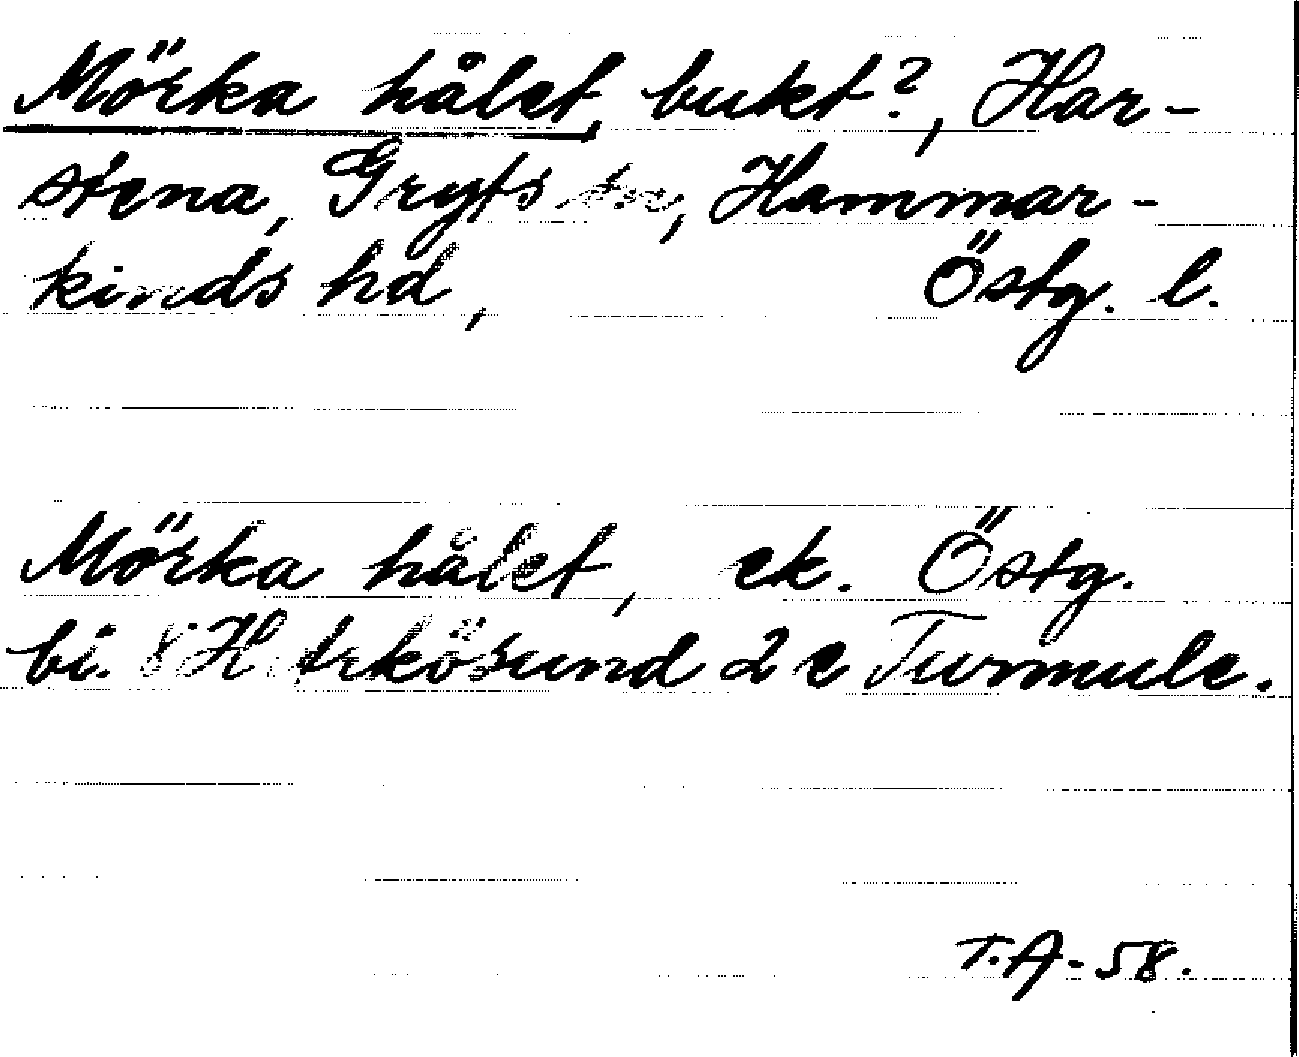 Mörka hålet, bukt?, Har-
stena, Gryts sn, Hammar-
kinds hd, Östg. l.
Mörka hålet, ek. Östg.
bl. 8 H Arkösund 2 c Turmule.
T.A-58.